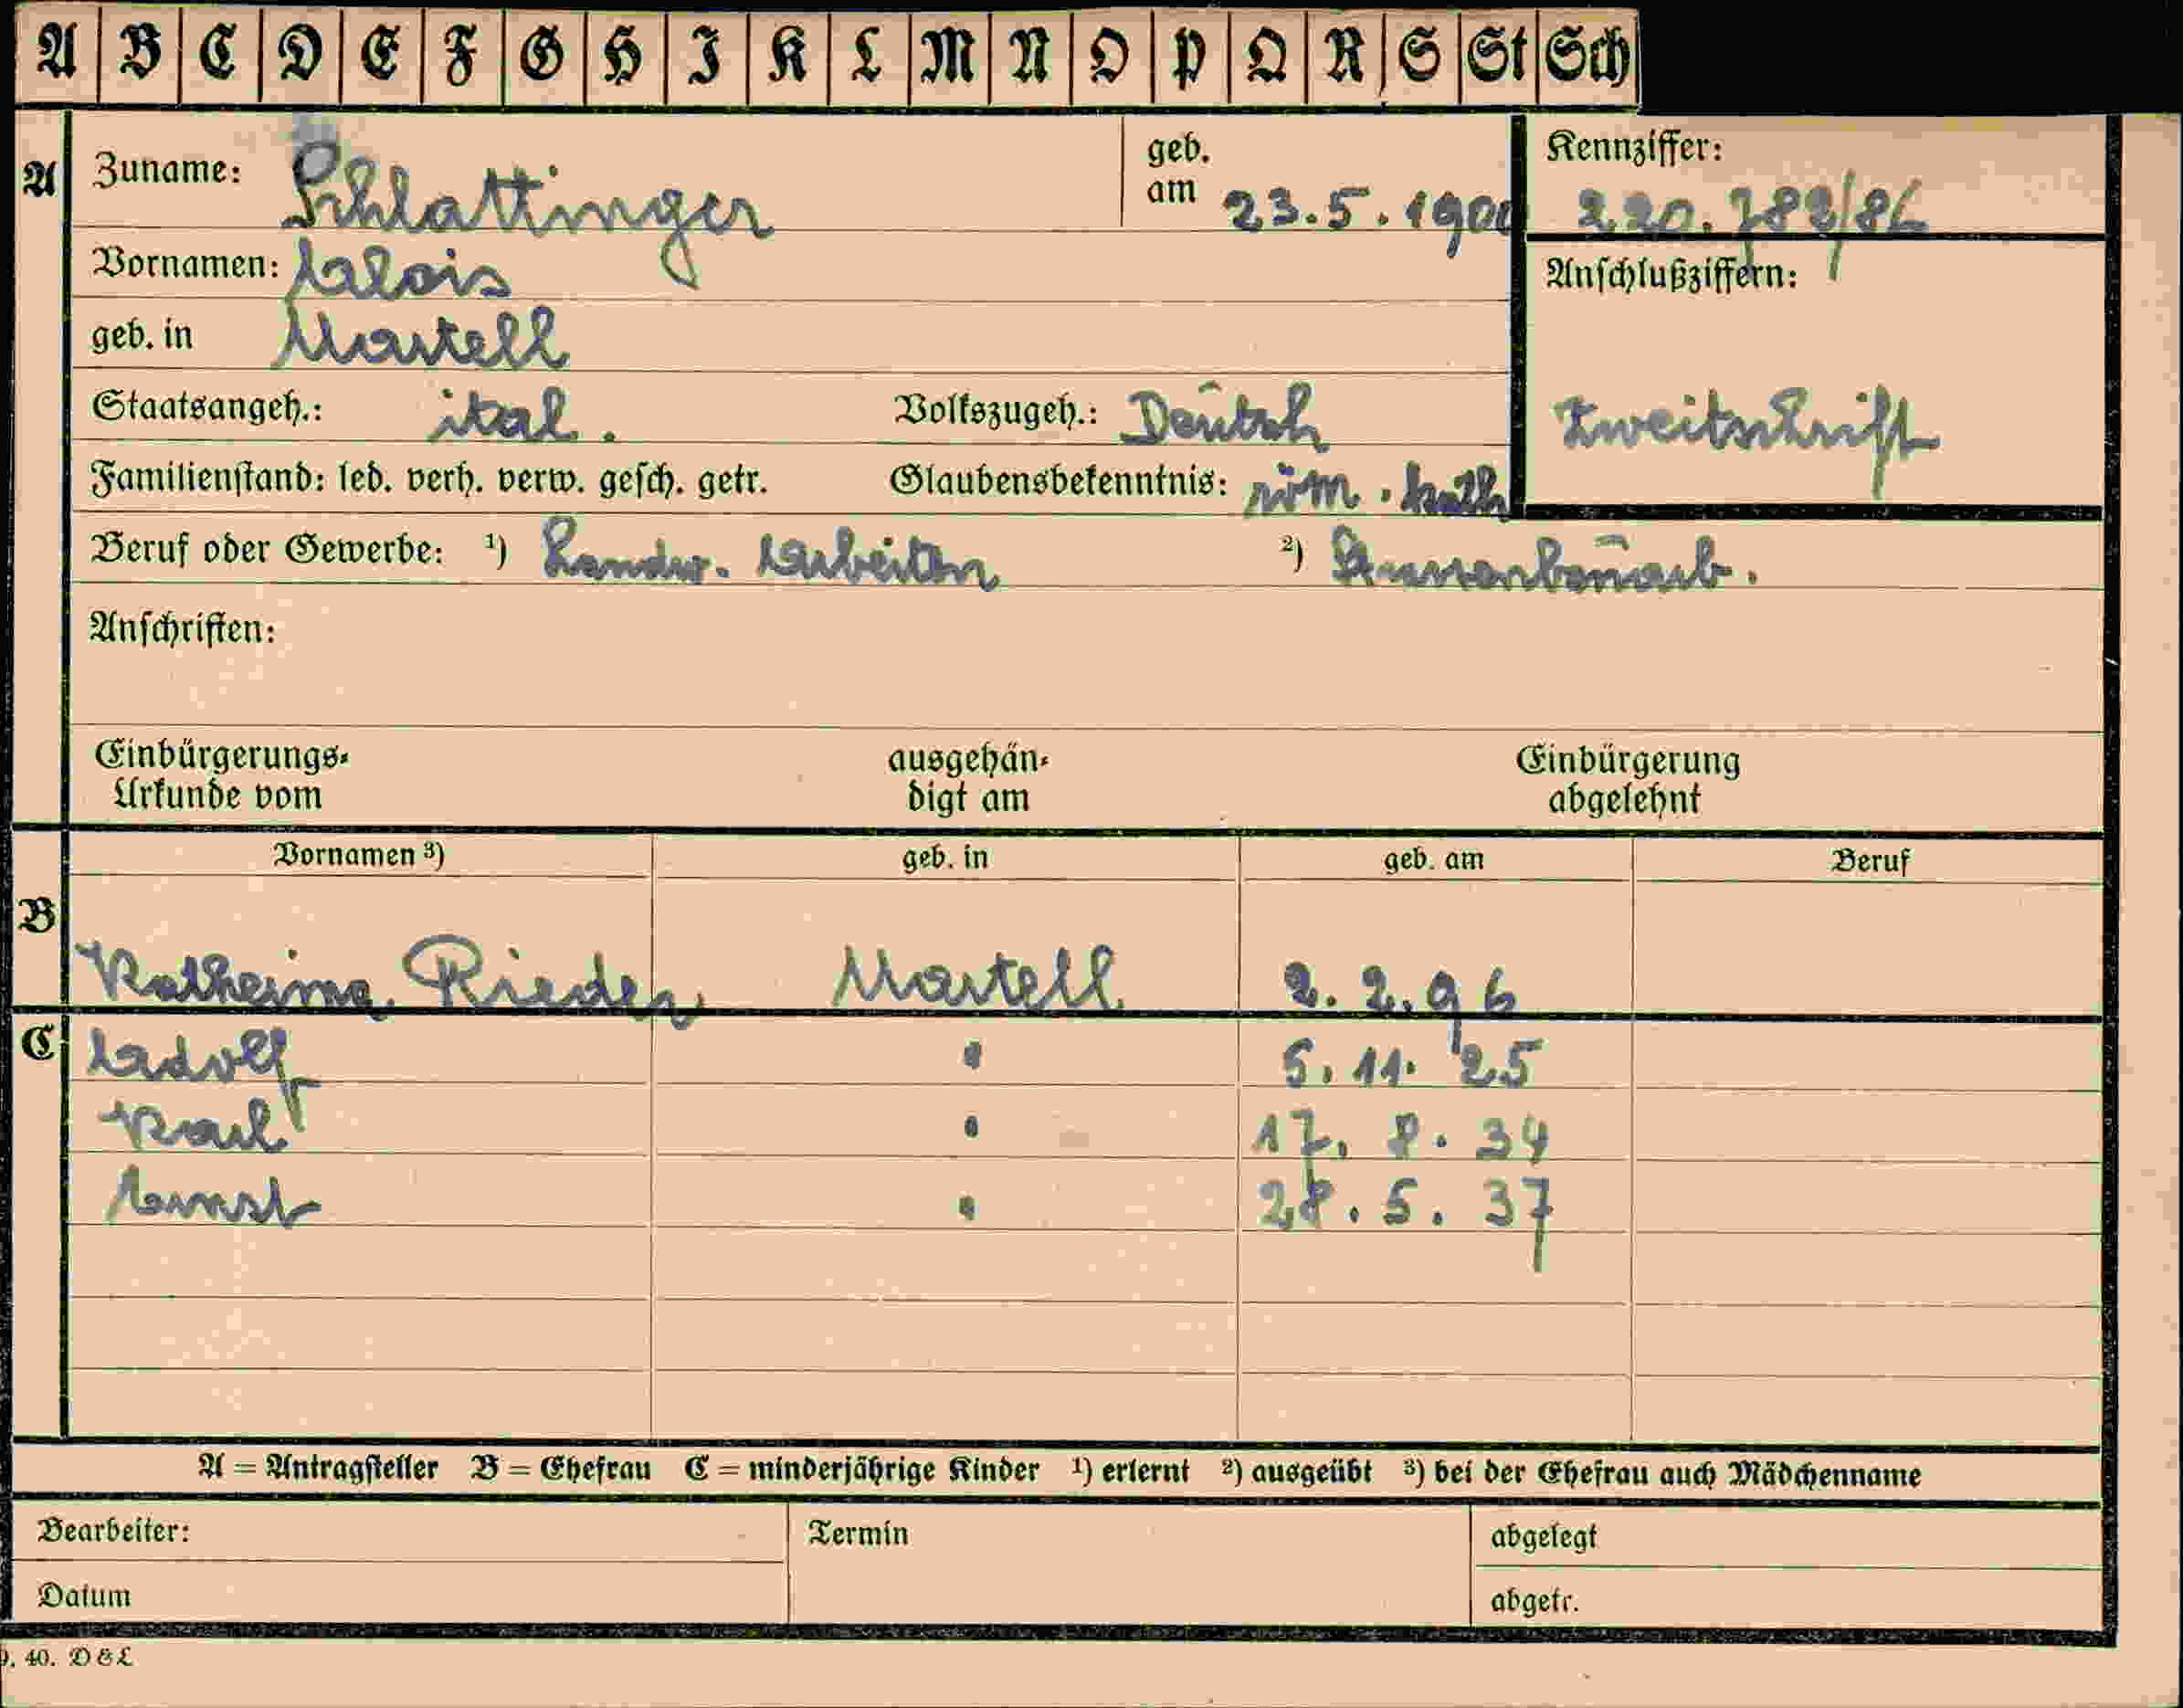 A B C D E F G H I K L M N O P Q R S St Sch
A Zuname: Schlattinger geb. am 23.5.1900 Kennziffer: 220.782/86
Vornamen: Alois Anschlußziffern:
geb. in Martell
Staatsangeh.: ital. Volkszugeh.: Deutsch Zweitschrift
Familienstand: led. verh. verw. gesch. getr. Glaubensbekenntnis: röm. kath
Beruf oder Gewerbe: ¹) Landw. Arbeiter ²)
Anschriften:
Einbürgerungs- ausgehän- Einbürgerung
Urkunde vom digt am abgelehnt
Vornamen ³) geb. in geb. am Beruf
B
Katherina Rieder Martell 2.2.96
C Adolf " 5. 11. 25
Karl " 17. 8. 34
Ernst " 28. 5. 37
A = Antragsteller B = Ehefrau C = minderjährige Kinder ¹) erlernt ²) ausgeübt ³) bei der Ehefrau auch Mädchenname
Bearbeiter: Termin abgelegt
Datum abgetr.
40. D & L